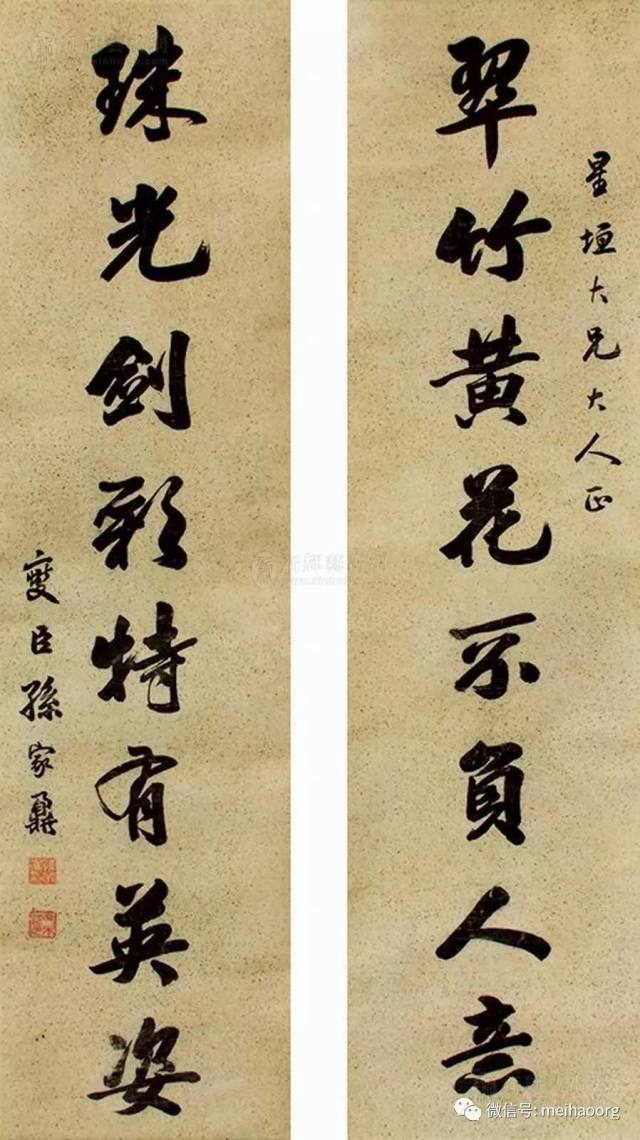 星垣大兄大人正
翠竹黄花不負人意
珠光劍彩特有英姿
燮臣孫家鼐
微信号: meihaoorg